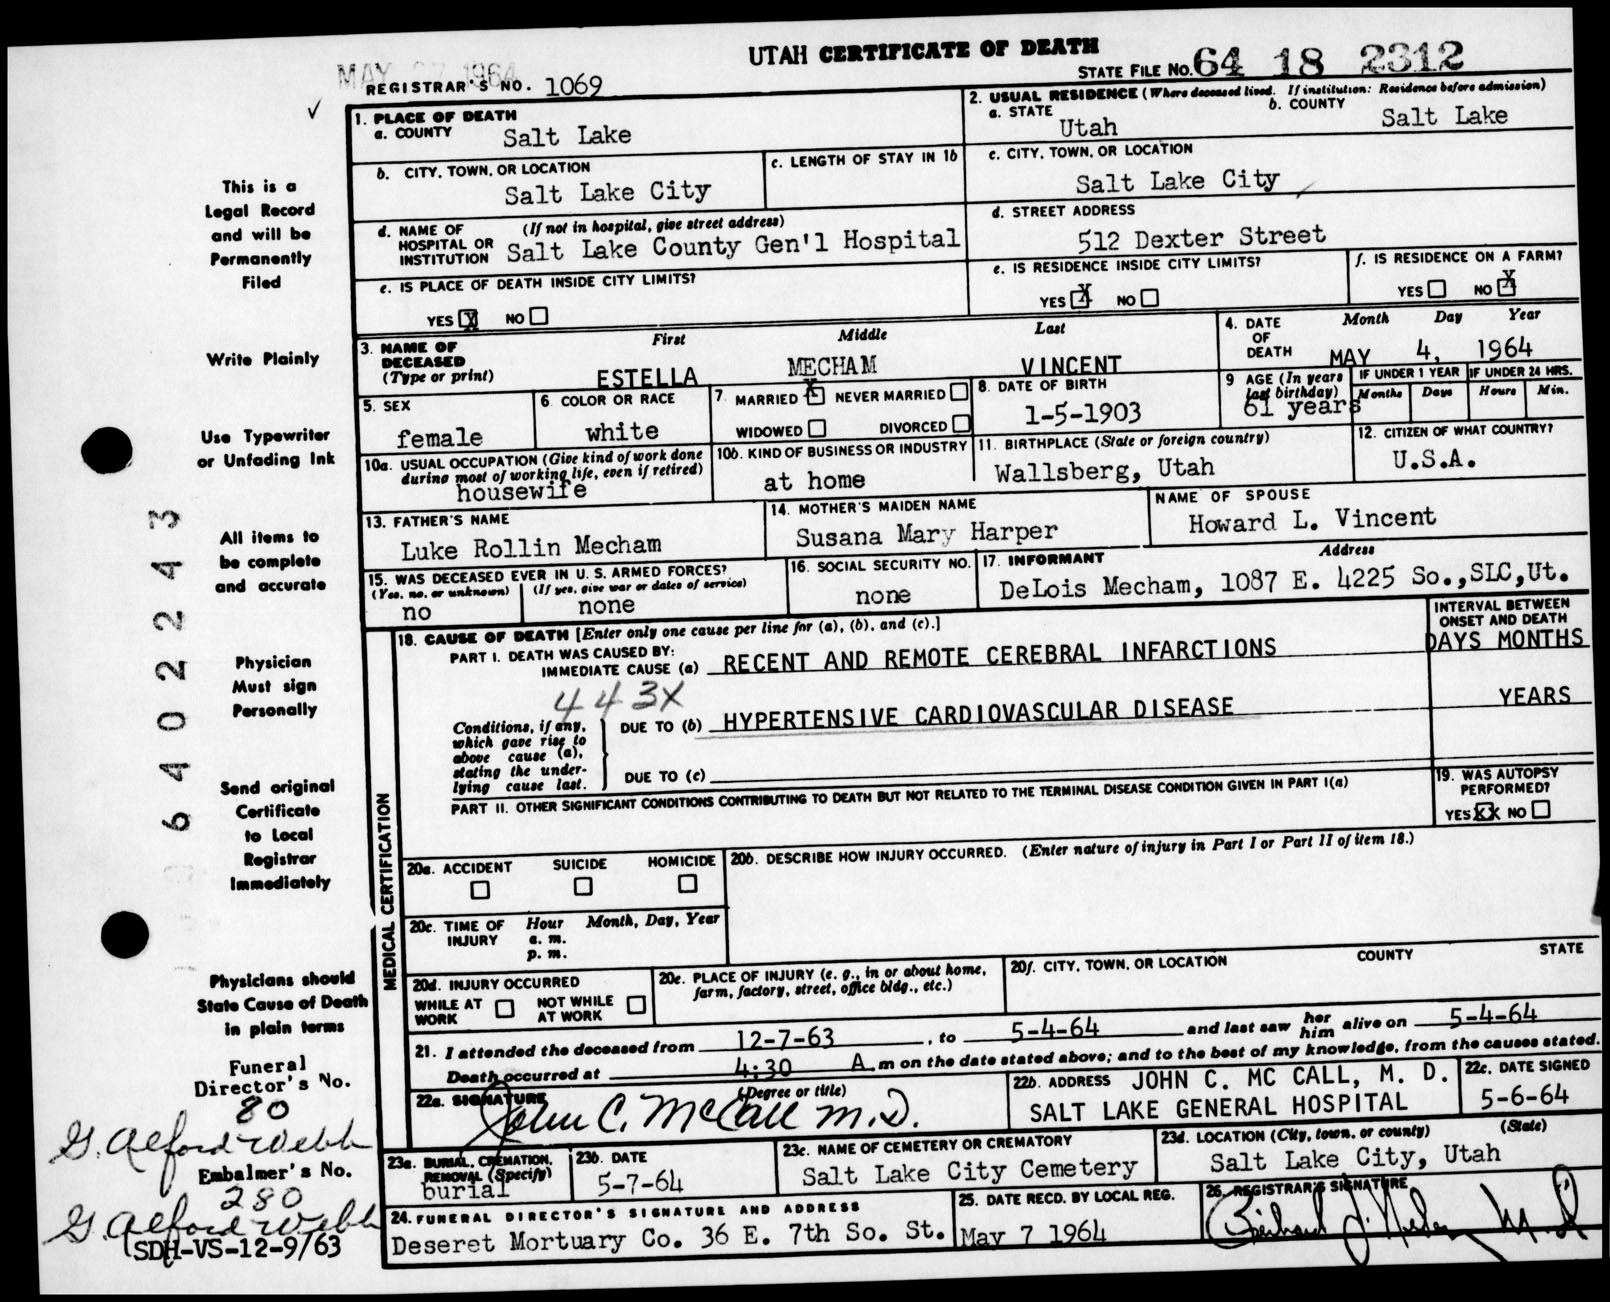 UTAH CERTIFICATE OF DEATH
MAY 07 1964
REGISTRAR'S NO. 1069
STATE FILE NO. 64 18 2312
✓
1. PLACE OF DEATH
a. COUNTY Salt Lake
2. USUAL RESIDENCE (Where deceased lived. If institution: Residence before admission)
a. STATE Utah
b. COUNTY Salt Lake
b. CITY, TOWN, OR LOCATION
Salt Lake City
c. LENGTH OF STAY IN 1b
c. CITY, TOWN, OR LOCATION
Salt Lake City
d. NAME OF HOSPITAL OR INSTITUTION (If not in hospital, give street address)
Salt Lake County Gen'l Hospital
d. STREET ADDRESS
512 Dexter Street
e. IS PLACE OF DEATH INSIDE CITY LIMITS?
YES X NO
e. IS RESIDENCE INSIDE CITY LIMITS?
YES X NO
f. IS RESIDENCE ON A FARM?
YES NO X
3. NAME OF DECEASED (Type or print)
First Middle Last
ESTELLA MECHAM VINCENT
4. DATE OF DEATH
Month Day Year
MAY 4, 1964
5. SEX
female
6. COLOR OR RACE
white
7. MARRIED X NEVER MARRIED
WIDOWED DIVORCED
8. DATE OF BIRTH
1-5-1903
9 AGE (In years last birthday)
61 years
IF UNDER 1 YEAR
Months Days
IF UNDER 24 HRS.
Hours Min.
10a. USUAL OCCUPATION (Give kind of work done during most of working life, even if retired)
housewife
10b. KIND OF BUSINESS OR INDUSTRY
at home
11. BIRTHPLACE (State or foreign country)
Wallsberg, Utah
12. CITIZEN OF WHAT COUNTRY?
U.S.A.
13. FATHER'S NAME
Luke Rollin Mecham
14. MOTHER'S MAIDEN NAME
Susana Mary Harper
NAME OF SPOUSE
Howard L. Vincent
15. WAS DECEASED EVER IN U. S. ARMED FORCES?
(Yes, no, or unknown) (If yes, give war or dates of service)
no none
16. SOCIAL SECURITY NO.
none
17. INFORMANT Address
DeLois Mecham, 1087 E. 4225 So.,SLC,Ut.
18. CAUSE OF DEATH [Enter only one cause per line for (a), (b), and (c).]
INTERVAL BETWEEN ONSET AND DEATH
PART I. DEATH WAS CAUSED BY:
IMMEDIATE CAUSE (a) RECENT AND REMOTE CEREBRAL INFARCTIONS DAYS MONTHS
443X
Conditions, if any, which gave rise to above cause (a), stating the underlying cause last.
DUE TO (b) HYPERTENSIVE CARDIOVASCULAR DISEASE YEARS
DUE TO (c)
PART II. OTHER SIGNIFICANT CONDITIONS CONTRIBUTING TO DEATH BUT NOT RELATED TO THE TERMINAL DISEASE CONDITION GIVEN IN PART I(a)
19. WAS AUTOPSY PERFORMED?
YES XX NO
MEDICAL CERTIFICATION
20a. ACCIDENT SUICIDE HOMICIDE
20b. DESCRIBE HOW INJURY OCCURRED. (Enter nature of injury in Part I or Part II of item 18.)
20c. TIME OF INJURY
Hour Month, Day, Year
a. m.
p. m.
20d. INJURY OCCURRED
WHILE AT WORK NOT WHILE AT WORK
20e. PLACE OF INJURY (e. g., in or about home, farm, factory, street, office bldg., etc.)
20f. CITY, TOWN, OR LOCATION COUNTY STATE
21. I attended the deceased from 12-7-63, to 5-4-64 and last saw her him alive on 5-4-64
Death occurred at 4:30 A. m on the date stated above; and to the best of my knowledge, from the causes stated.
22a. SIGNATURE (Degree or title)
John C. McCall M.D.
22b. ADDRESS JOHN C. MC CALL, M. D.
SALT LAKE GENERAL HOSPITAL
22c. DATE SIGNED
5-6-64
23a. BURIAL, CREMATION, REMOVAL (Specify)
burial
23b. DATE
5-7-64
23c. NAME OF CEMETERY OR CREMATORY
Salt Lake City Cemetery
23d. LOCATION (City, town, or county) (State)
Salt Lake City, Utah
24. FUNERAL DIRECTOR'S SIGNATURE AND ADDRESS
Deseret Mortuary Co. 36 E. 7th So. St.
25. DATE RECD. BY LOCAL REG.
May 7 1964
26. REGISTRAR'S SIGNATURE
This is a
Legal Record
and will be
Permanently
Filed
Write Plainly
Use Typewriter
or Unfading Ink
All items to
be complete
and accurate
Physician
Must sign
Personally
Send original
Certificate
to Local
Registrar
Immediately
Physicians should
State Cause of Death
in plain terms
Funeral
Director's No.
80
G. Alford Webb
Embalmer's No.
280
G. Alford Webb
SDH-VS-12-9/63
6402243